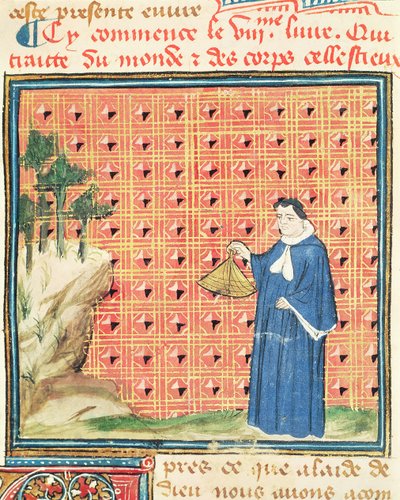 ceste presente euure
Cy commence le viii.me liure. Qui
traicte du monde ⁊ des corps cellestieux
pres ce que alaide de
dieu nous auons acom